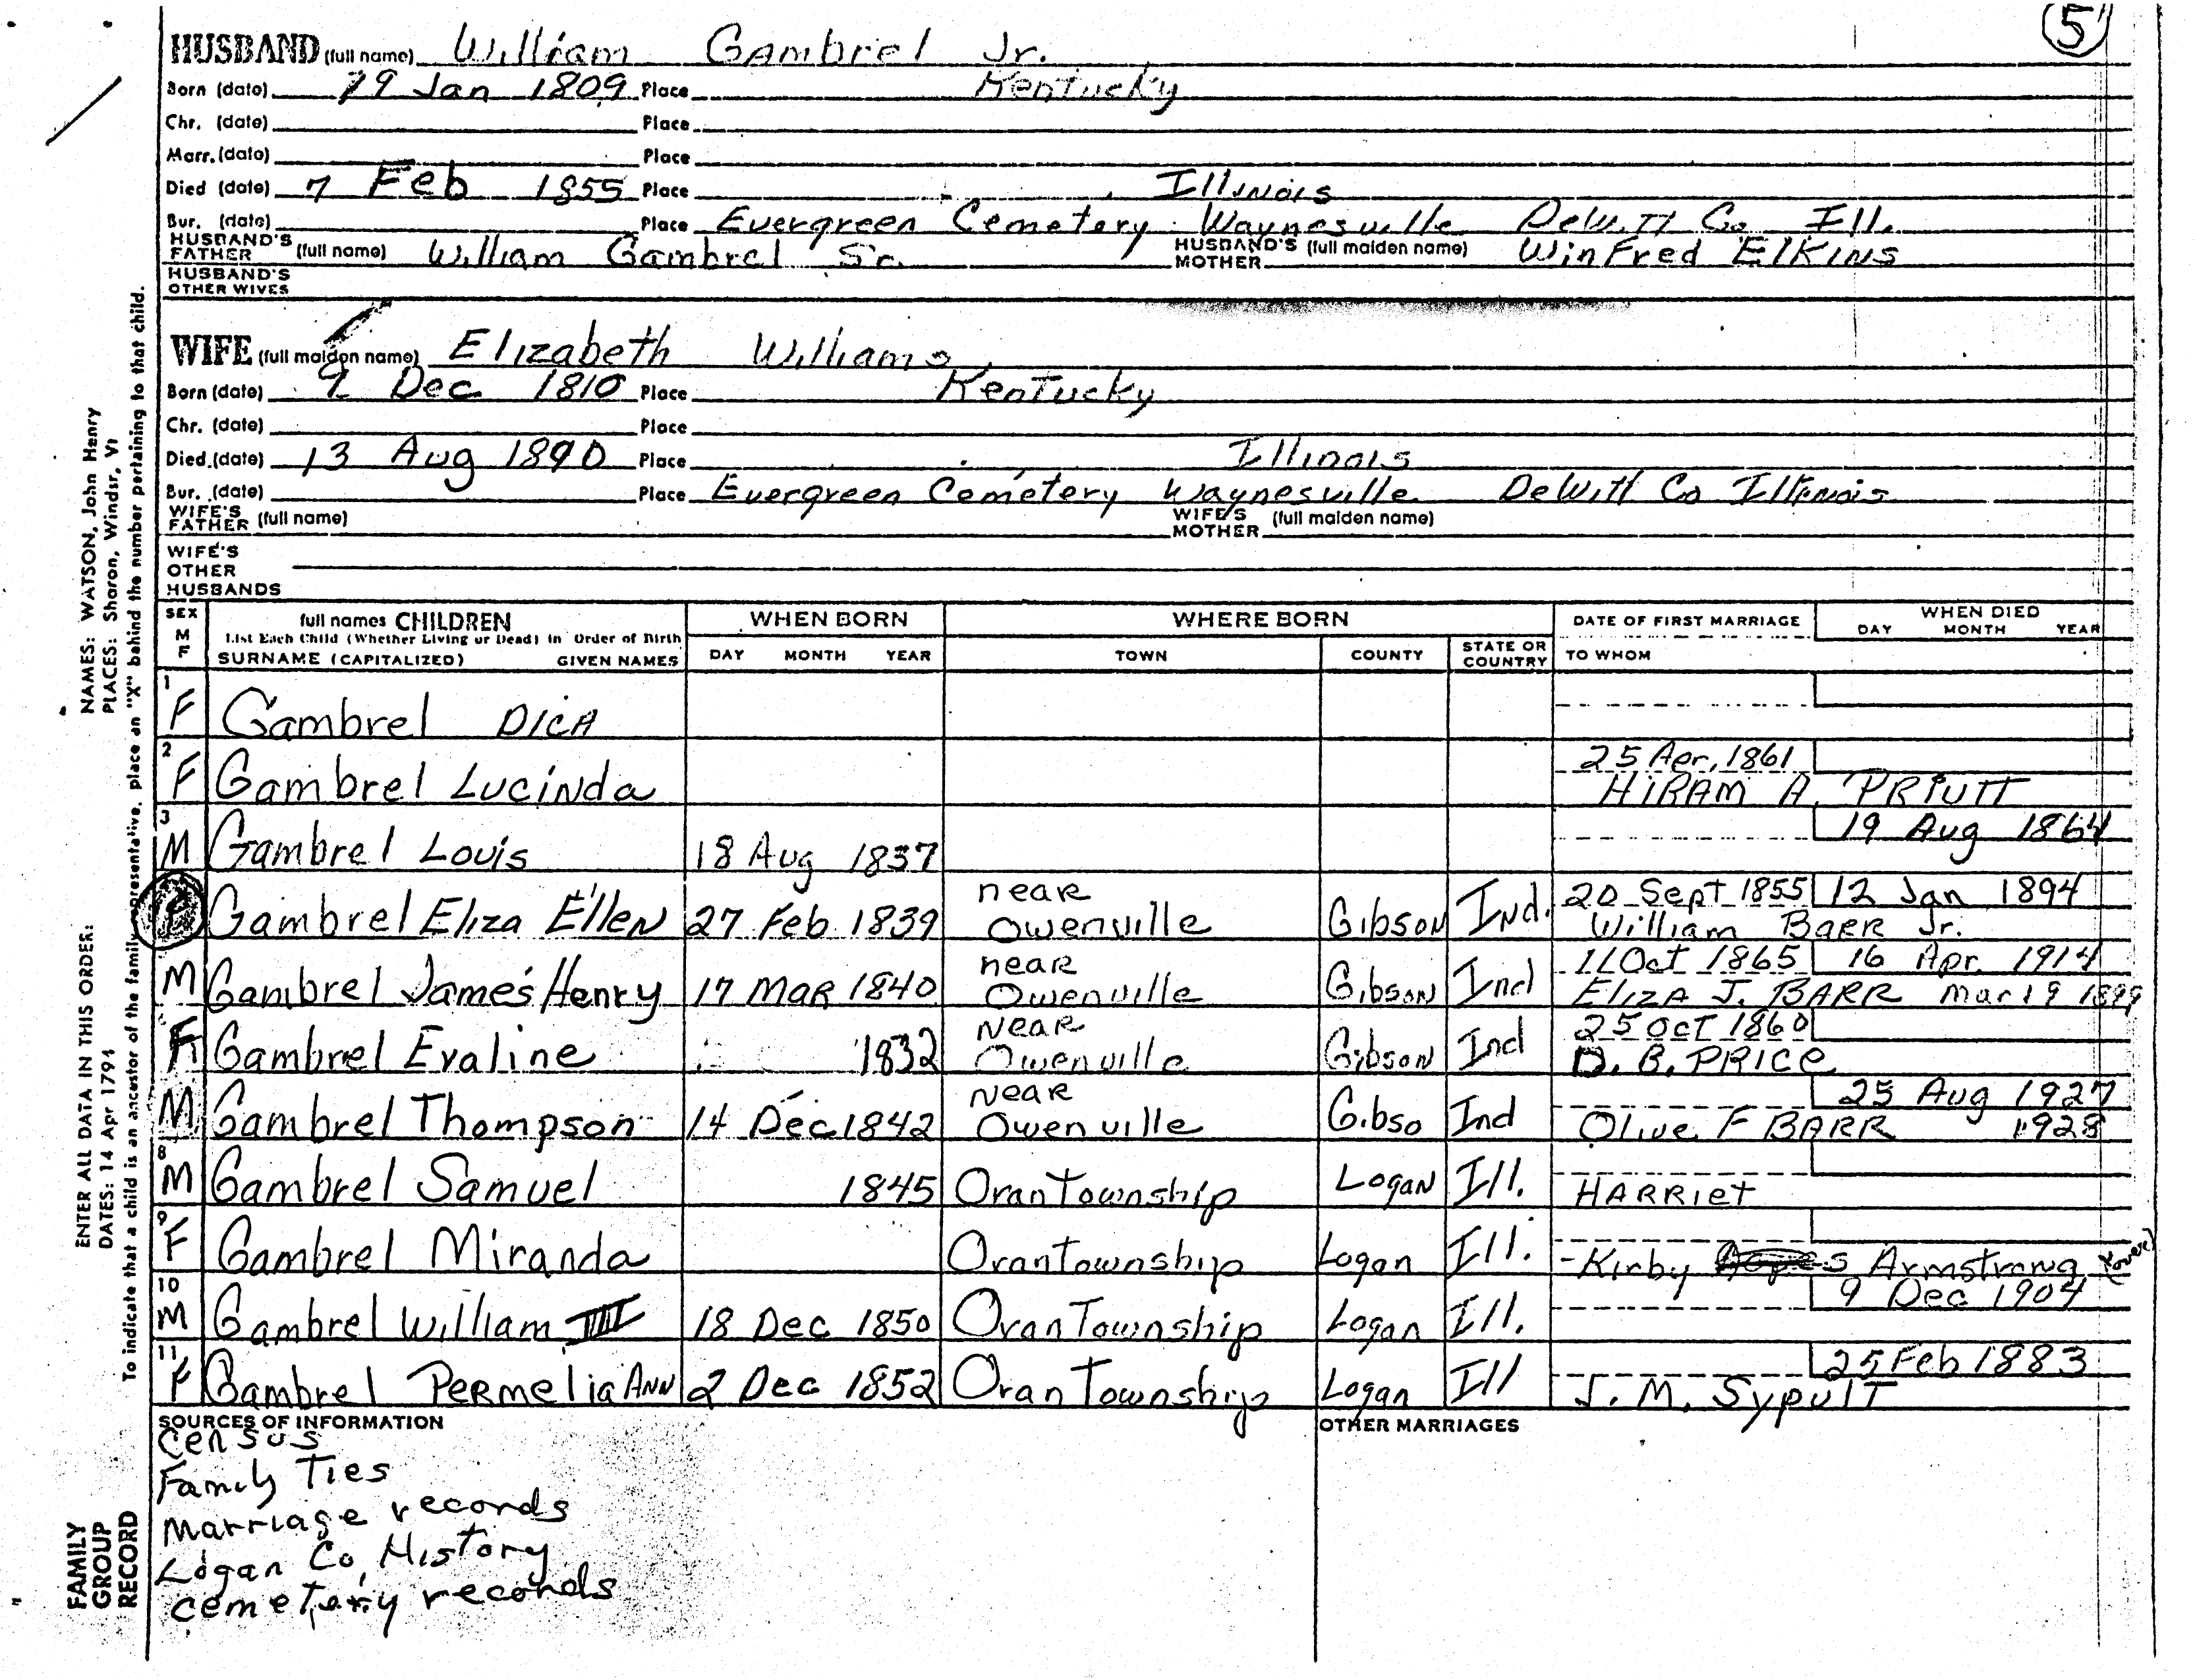 5
HUSBAND (full name) William Gambrel Jr.
Born (date) 29 Jan 1809 Place Kentucky
Chr. (date) Place
Marr. (date) Place
Died (date) 7 Feb 1855 Place Illinois
Bur. (date) Place Evergreen Cemetery Waynesville DeWitt Co Ill.
HUSBAND'S FATHER (full name) William Gambrel Sr. HUSBAND'S MOTHER (full maiden name) WinFred Elkins
HUSBAND'S OTHER WIVES
WIFE (full maiden name) Elizabeth Williams
Born (date) 9 Dec 1810 Place Kentucky
Chr. (date) Place
Died (date) 13 Aug 1890 Place Illinois
Bur. (date) Place Evergreen Cemetery Waynesville DeWitt Co Illinois
WIFE'S FATHER (full name) WIFE'S MOTHER (full maiden name)
WIFE'S OTHER HUSBANDS
SEX M F full names CHILDREN WHEN BORN WHERE BORN DATE OF FIRST MARRIAGE WHEN DIED
List Each Child (Whether Living or Dead) in Order of Birth
SURNAME (CAPITALIZED) GIVEN NAMES DAY MONTH YEAR TOWN COUNTY STATE OR COUNTRY TO WHOM DAY MONTH YEAR
1 F Gambrel DICA
2 F Gambrel Lucinda 25 Apr, 1861
HIRAM A. PRIUTT
3 M Gambrel Louis 18 Aug 1837 19 Aug 1864
Gambrel Eliza Ellen 27 Feb 1839 near Owenville Gibson Ind. 20 Sept 1855 12 Jan 1894
William BARR Jr.
M Gambrel James Henry 17 MAR 1840 near Owenville Gibson Ind 11 Oct 1865 16 Apr. 1914
Eliza J. BARR Mar 19 1899
F Gambrel Evaline 1832 Near Owenville Gibson Ind 25 Oct 1860
D. B. PRICE
M Gambrel Thompson 14 Dec 1842 Near Owenville Gibso Ind 25 Aug 1927
Olive F BARR 1928
8 M Gambrel Samuel 1845 Oran Township Logan Ill.
HARRIET
9 F Gambrel Miranda Oran Township Logan Ill.
-Kirby Armstrong
10 M Gambrel William III 18 Dec 1850 Oran Township Logan Ill. 9 Dec 1904
11 F Gambrel Permelia Ann 2 Dec 1852 Oran Township Logan Ill 25 Feb 1883
J. M. Sypult
SOURCES OF INFORMATION OTHER MARRIAGES
Census
Family Ties
Marriage records
Logan Co, History
Cemetery records
NAMES: WATSON, John Henry
PLACES: Sharon, Windsr, Vt
ENTER ALL DATA IN THIS ORDER:
DATES: 14 Apr 1794
To indicate that a child is an ancestor of the family representative, place an "X" behind the number pertaining to that child.
FAMILY
GROUP
RECORD